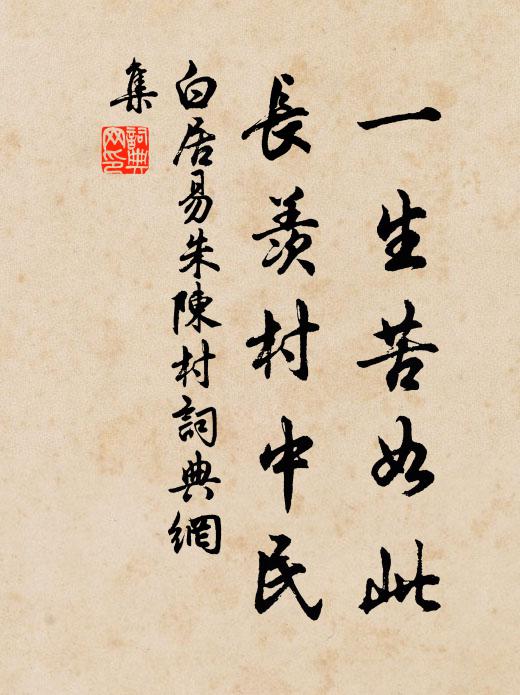 一生苦如此
長羨村中民
白居易朱陳村詞典網
集
詞典
网印